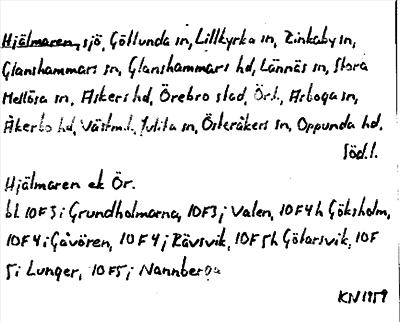 Hjälmaren, sjö, Götlunda sn, Lillkyrka sn, Rinkaby sn,
Glanshammars sn, Glanshammars hd, Lännäs sn, Stora
Mellösa sn, Askers hd, Örebro stad, Ör.l., Arboga sn,
Åkerbo hd, Västm.l., Julita sn, Österåkers sn, Oppunda hd,
Söd.l.
Hjälmaren ek Ör.
bl 10F3i Grundholmarna, 10F3j Valen, 10F4h Göksholm,
10F4i Gåvören, 10F4j Rävsvik, 10F5h Götarsvik, 10F
5i Lunger, 10F5j Nannberga
KN 1959